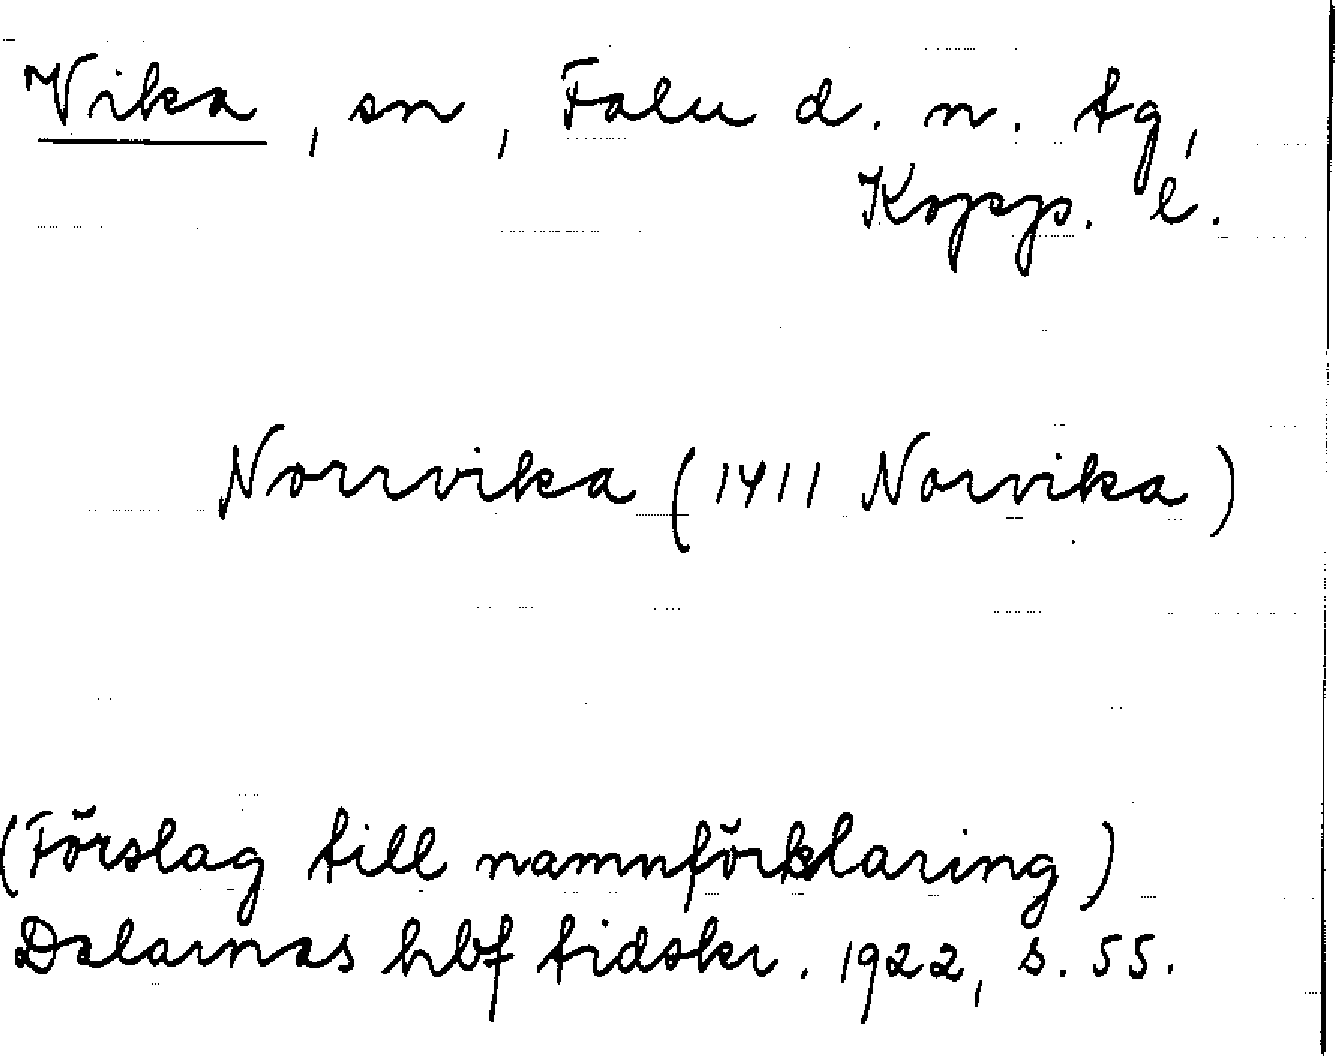 Vika, sn, Falu d. n. tg,
Kopp. l.
Norrvika (1411 Norvika)
(Förslag till namnförklaring)
Dalarnas hbf tidskr. 1922, s. 55.